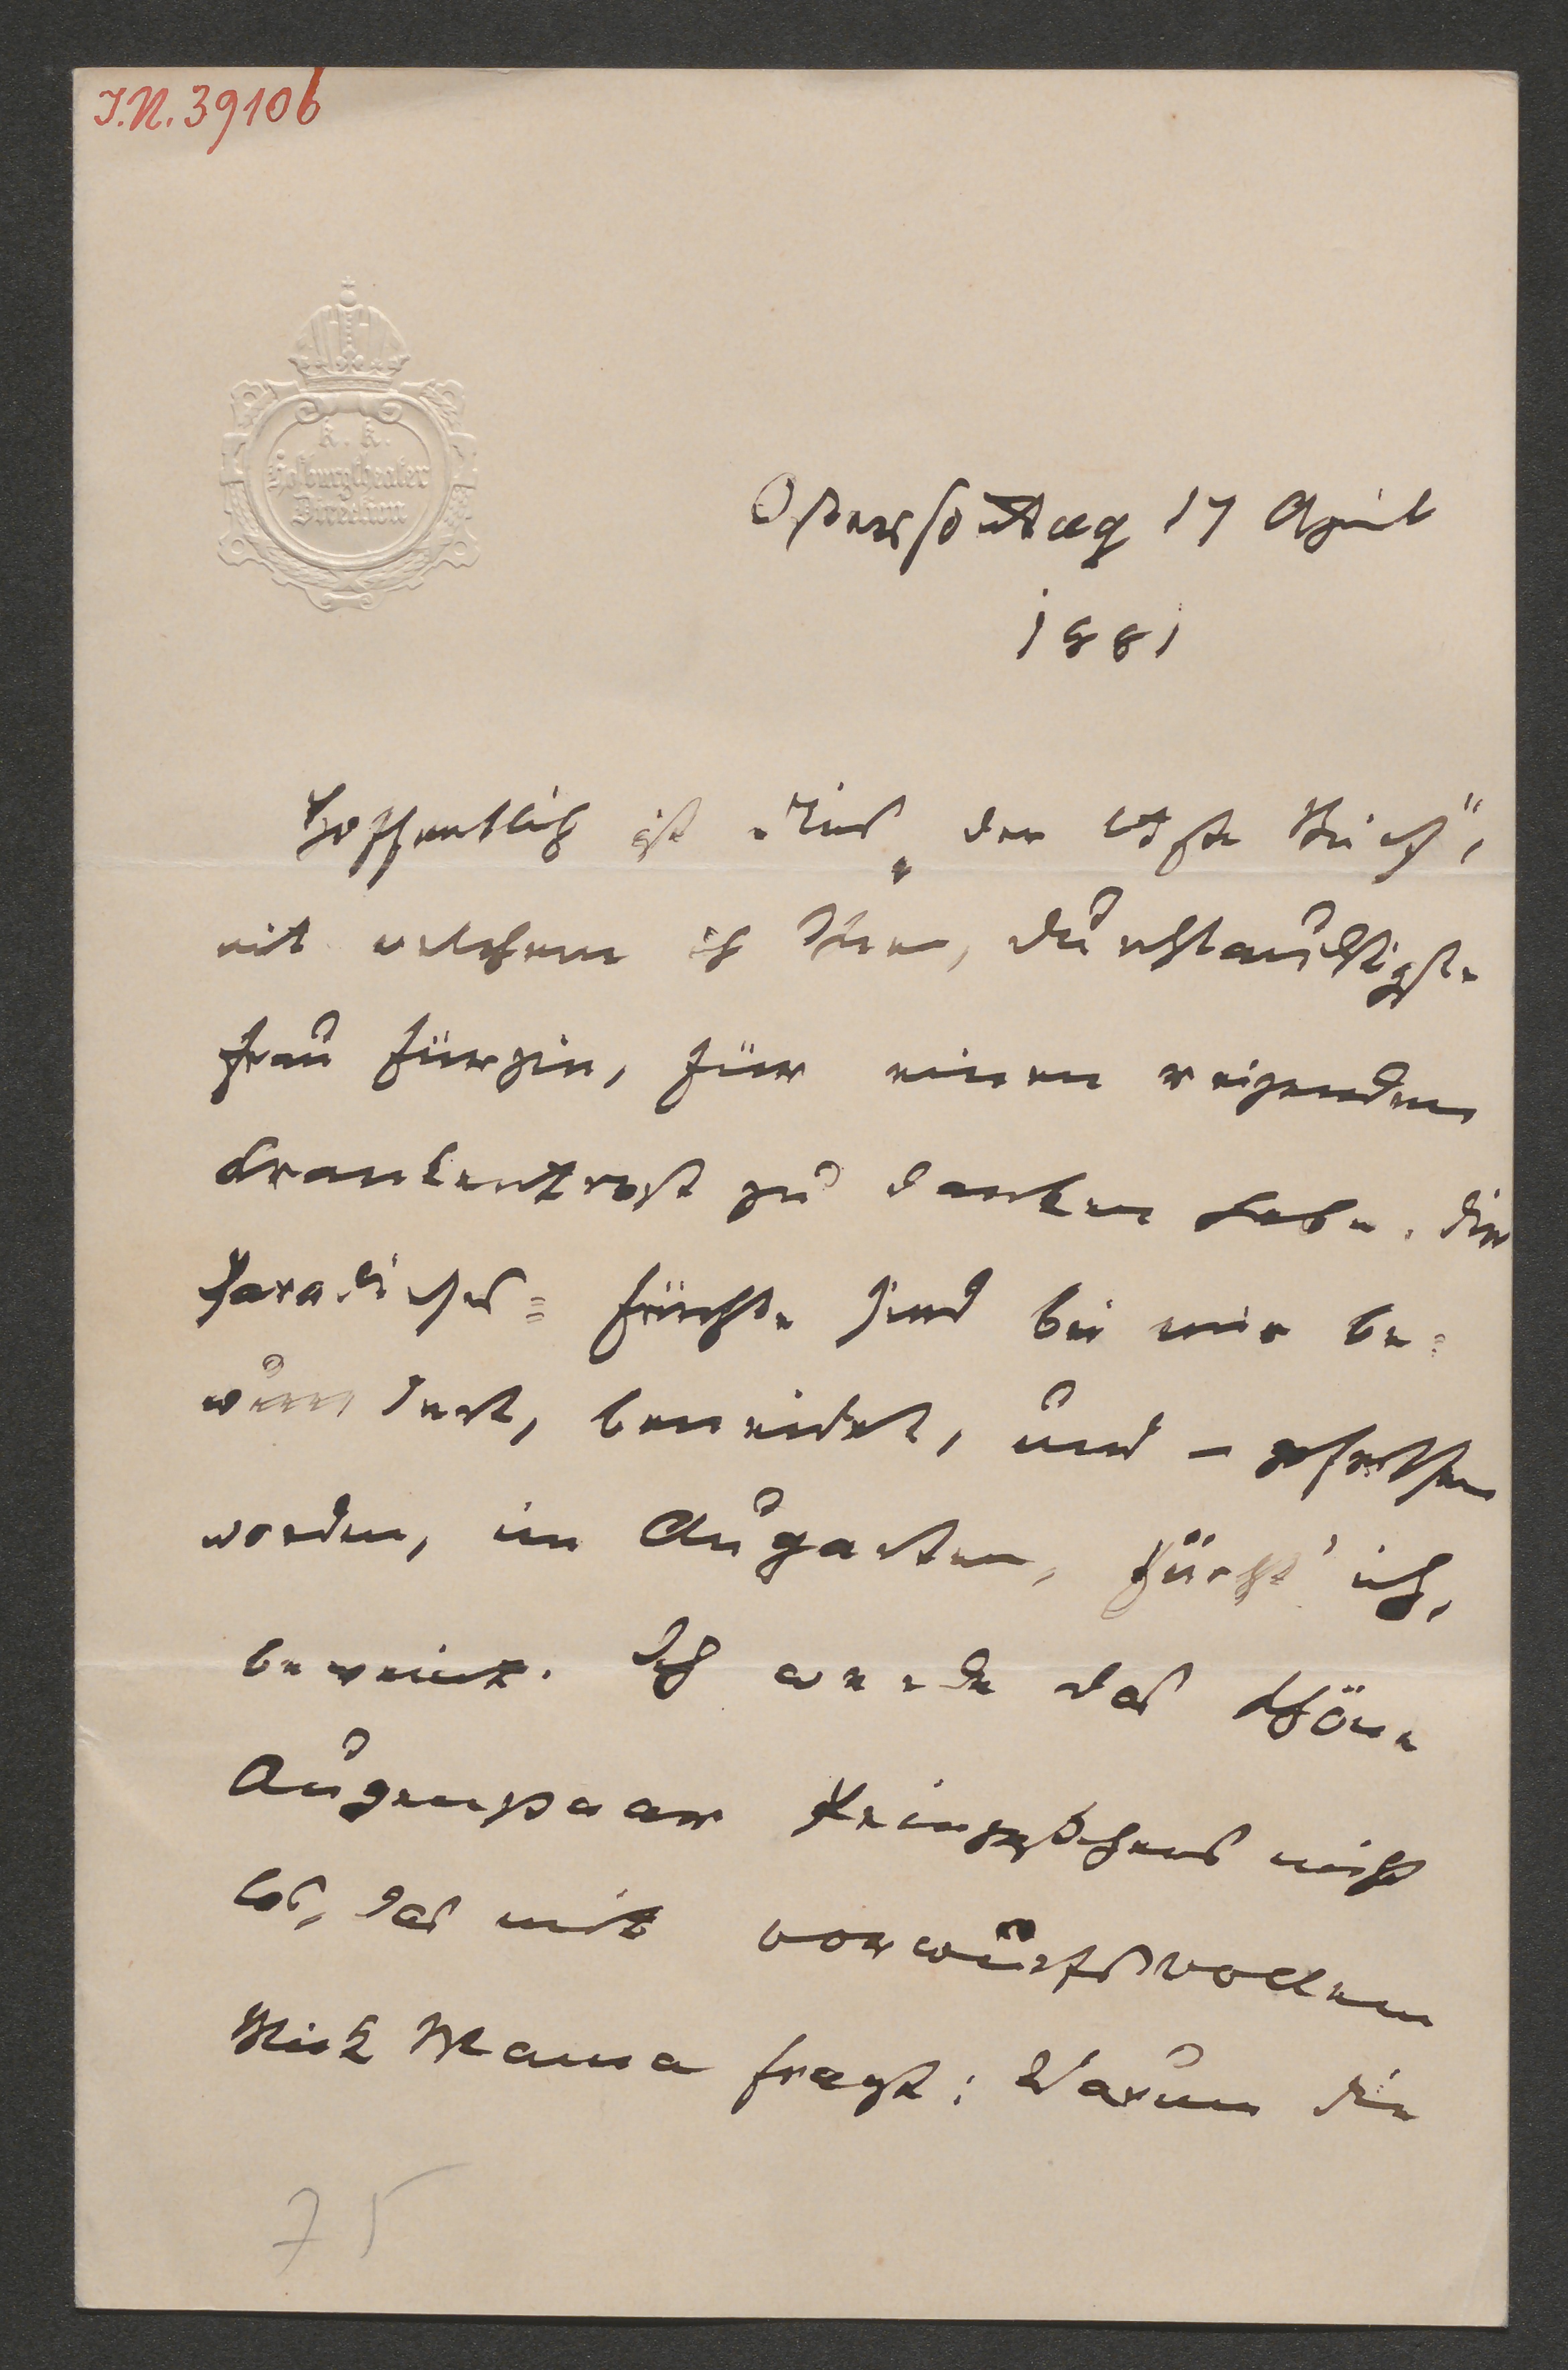 J.N. 39106
K. K.
Hofburgtheater
Direction
Ostersontag 17 April
1881
Hoffentlich ist dies „der letzte Brief",
mit welchem ich Ihnen, durchlauchtigste
Frau Fürstin, für einen reizenden
Krankentrost zu danken habe. Die
Paradieses= Früchte sind bei mir be=
wundert, beneidet, und – gefressen
worden, im Augarten, fürcht' ich,
beweint. Ich werde das schöne
Augenpaar Prinzeßchens nicht
los, das mit vorwurfsvollem
Blick Mama fragt: Warum die
75